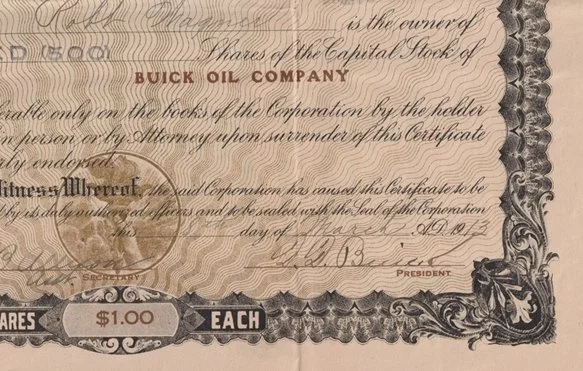 Robt Wagner is the owner of
D (500) Shares of the Capital Stock of
BUICK OIL COMPANY
erable only on the books of the Corporation by the holder
n person or by Attorney upon surrender of this Certificate
rly endorsed.
itness Whereof, the said Corporation has caused this Certificate to be
by its duly authorized officers and to be sealed with the Seal of the Corporation
this day of March A.D. 1913
SECRETARY PRESIDENT
ARES $1.00 EACH